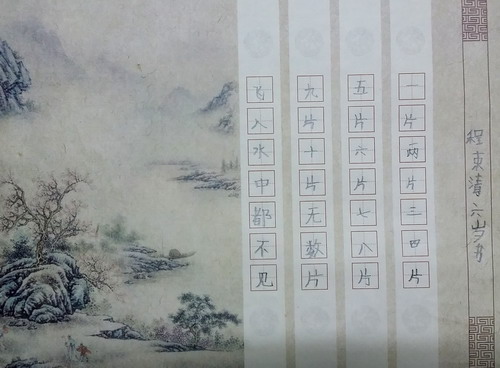 一片两片三四片
五片六片七八片
九片十片无数片
飞入水中都不见
程束清六岁书